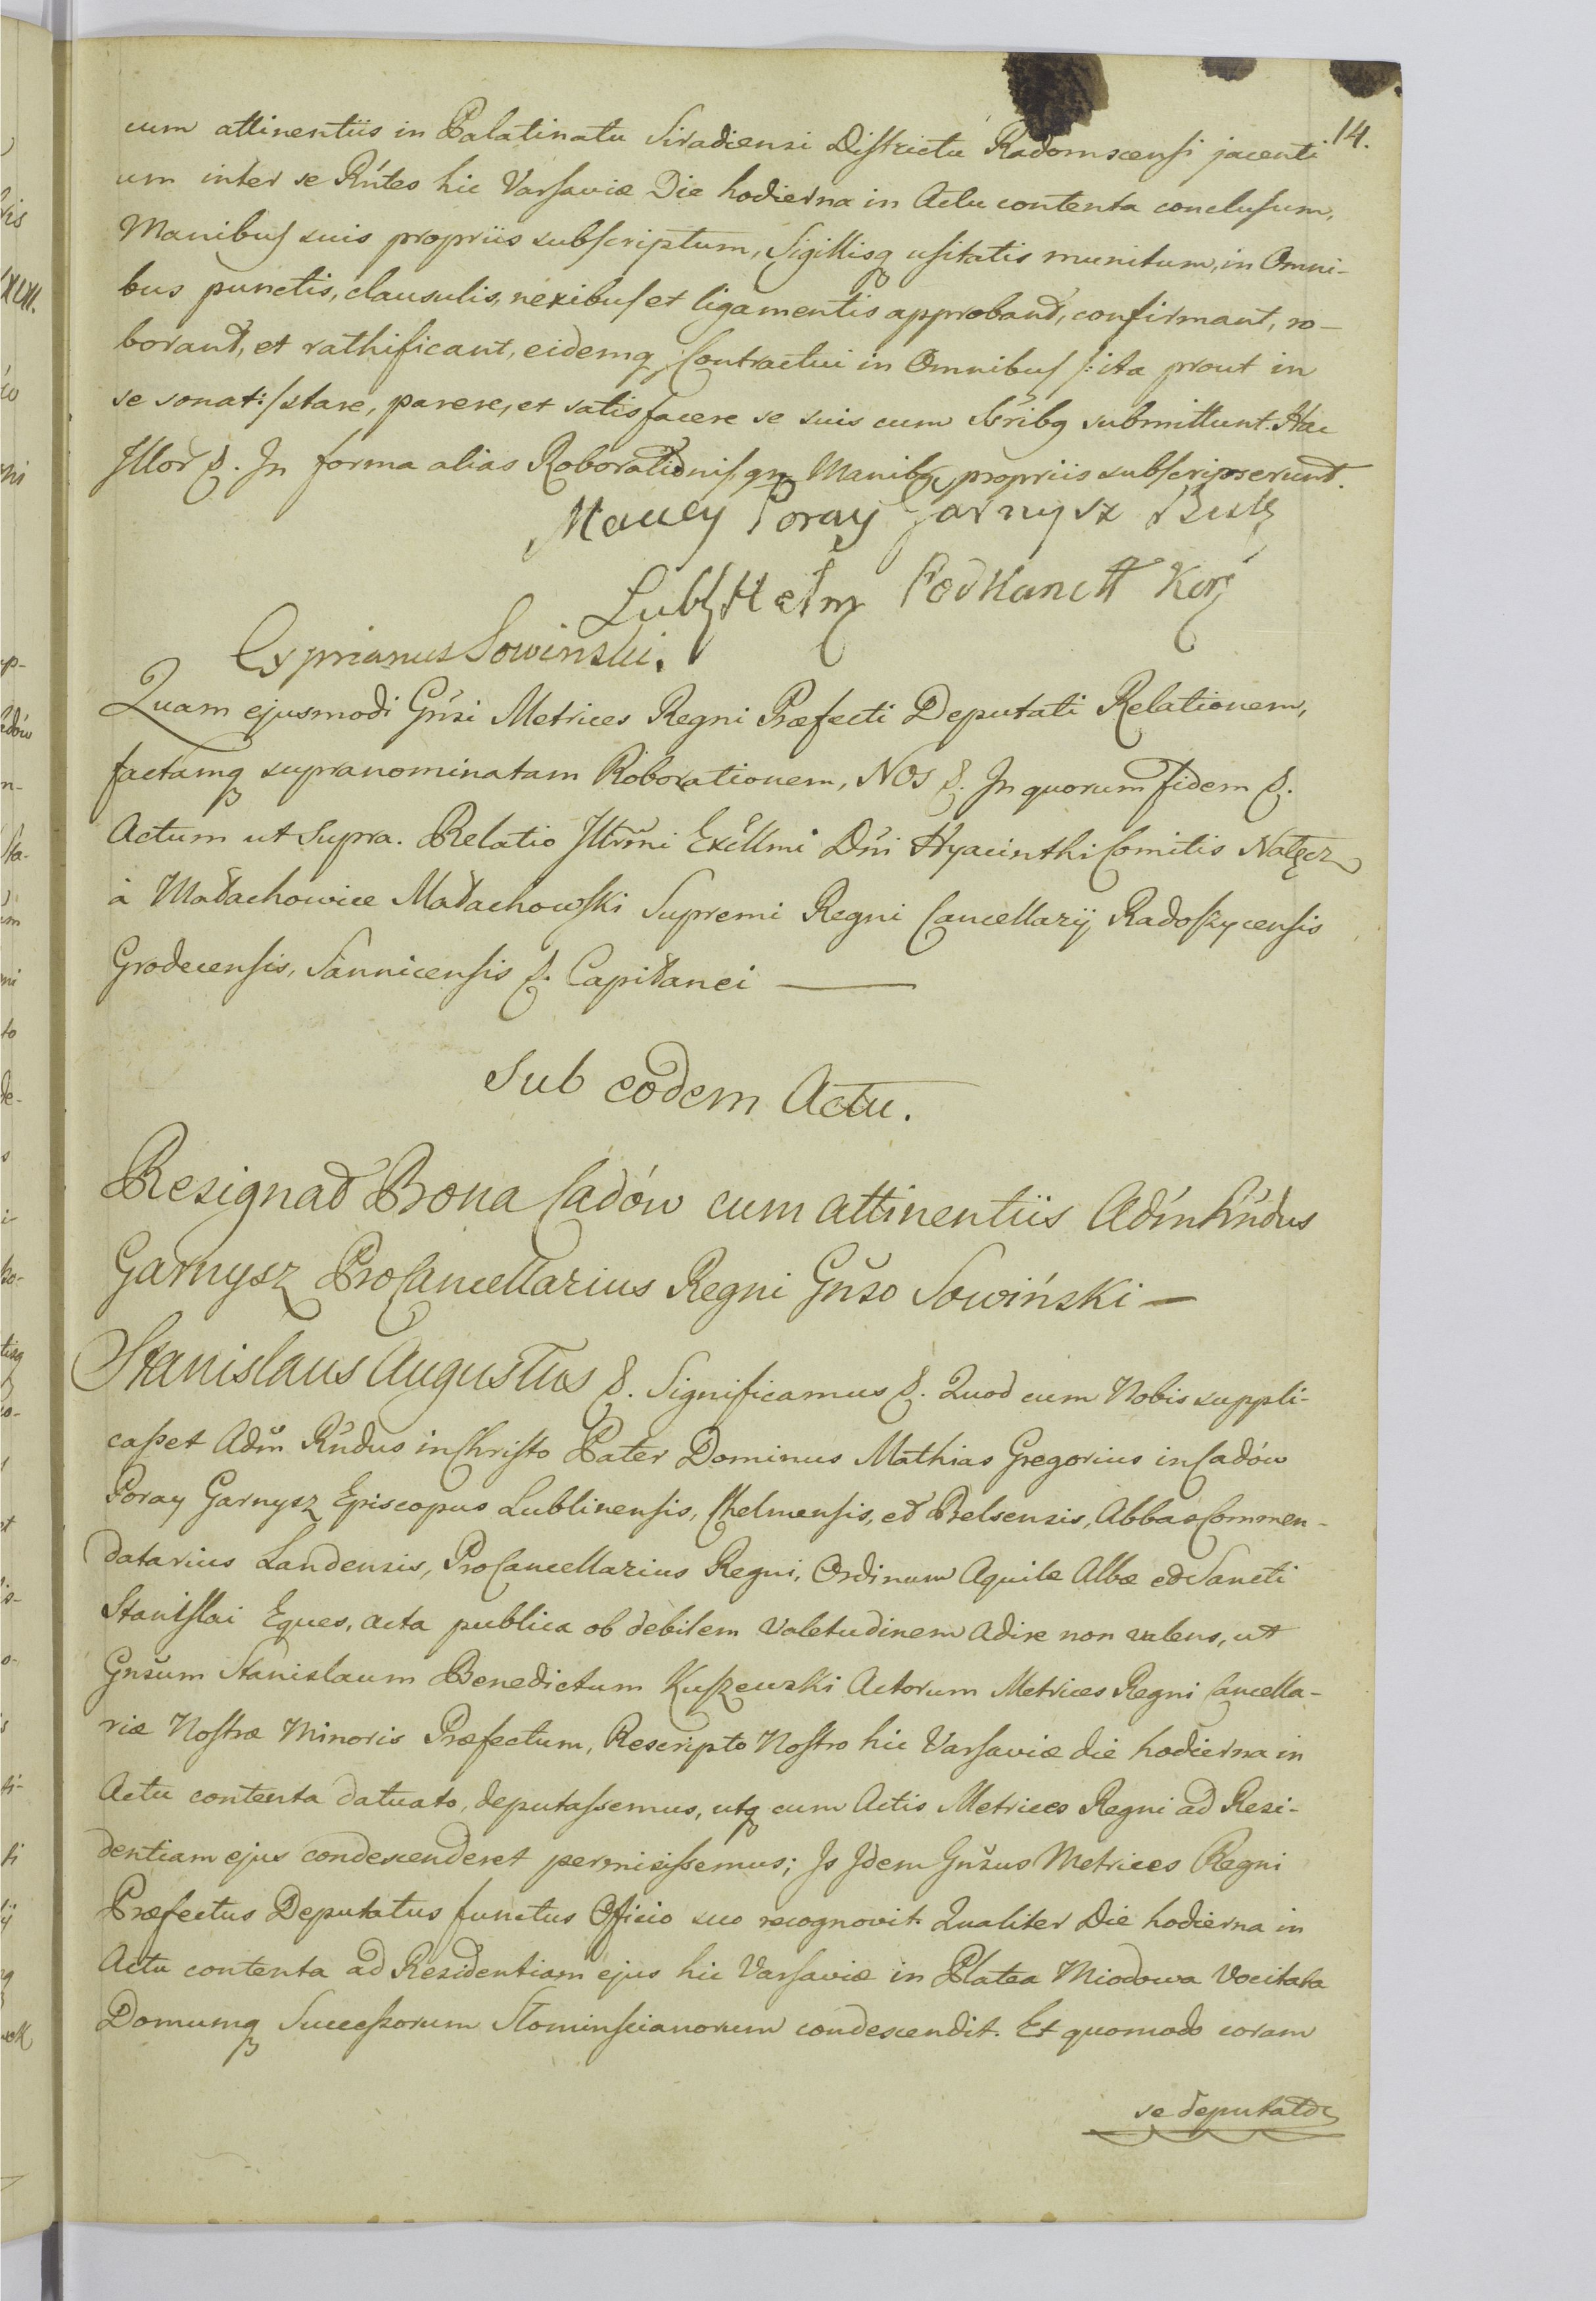 14.
cum attinentiis in Palatinatu Siradiensi Districtu Radomscensi jacenti
um inter se Rńtes hic Varsaviæ Die hodierna in Actu contenta conclusum,
Manibus suis propriis subscriptum, Sigillisq usitatis munitum, in Omni-
bus punctis, clausulis, nexibus et ligamentis approbant, confirmant, ro-
borant, et rathificant, eidemq Contractui in Omnibus /: ita prout in
se sonat :/ stare, parere, et satisfacere se suis cum Ssribq submittunt. Hac
Illor &. In forma alias Roborationis, qm Manibq propriis subscripserunt.
Maciey Poray Garnysz Bisk
Lub Hełm Podkancll Kor
Cyprianus Sowinski.
Quam ejusmodi Gńsi Metrices Regni Præfecti Deputati Relationem,
factamq supranominatam Roborationem, Nos &. In quorum fidem &.
Actum ut Supra. Relatio Illrmi Excllmi Dńi Hyacinthi Comitis Nałęcz
à Małachowice Małachowski Supremi Regni Cancellarij Radoszycensis
Grodecensis, Sannicensis &. Capitanei —
Sub eodem Actu.
Resignat Bona Cadów cum attinentiis Adḿ Rńdus
Garnysz ProCancellarius Regni Gńso Sowiński —
Stanislaus Augustus &. Significamus &. Quod cum Nobis suppli-
casset Adm̃ Rńdus in Christo Pater Dominus Mathias Gregorius in Cadów
Poray Garnysz Episcopus Lublinensis, Chelmensis, et Belsensis, Abbas Commen-
datarius Landensis, ProCancellarius Regni, Ordinum Aquilæ Albæ et Sancti
Stanislai Eques, acta publica ob debilem valetudinem adire non valens, ut
Gnsum Stanislaum Benedictum Kuszewski Actorum Metrices Regni Cancella-
riæ Nostræ Minoris Præfectum, Rescripto Nostro hic Varsaviæ die hodierna in
Actu contenta datuato, deputassemus, utq cum Actis Metrices Regni ad Resi-
dentiam ejus condescenderet permisissemus; Is Idem Gnsus Metrices Regni
Præfectus Deputatus functus Officio suo recognovit. Qualiter Die hodierna in
Actu contenta ad Residentiam ejus hic Varsaviæ in Platea Miodowa Vocitata
Domumq Successorum Słominscianorum condescendit. Et quomodo coram
se deputato